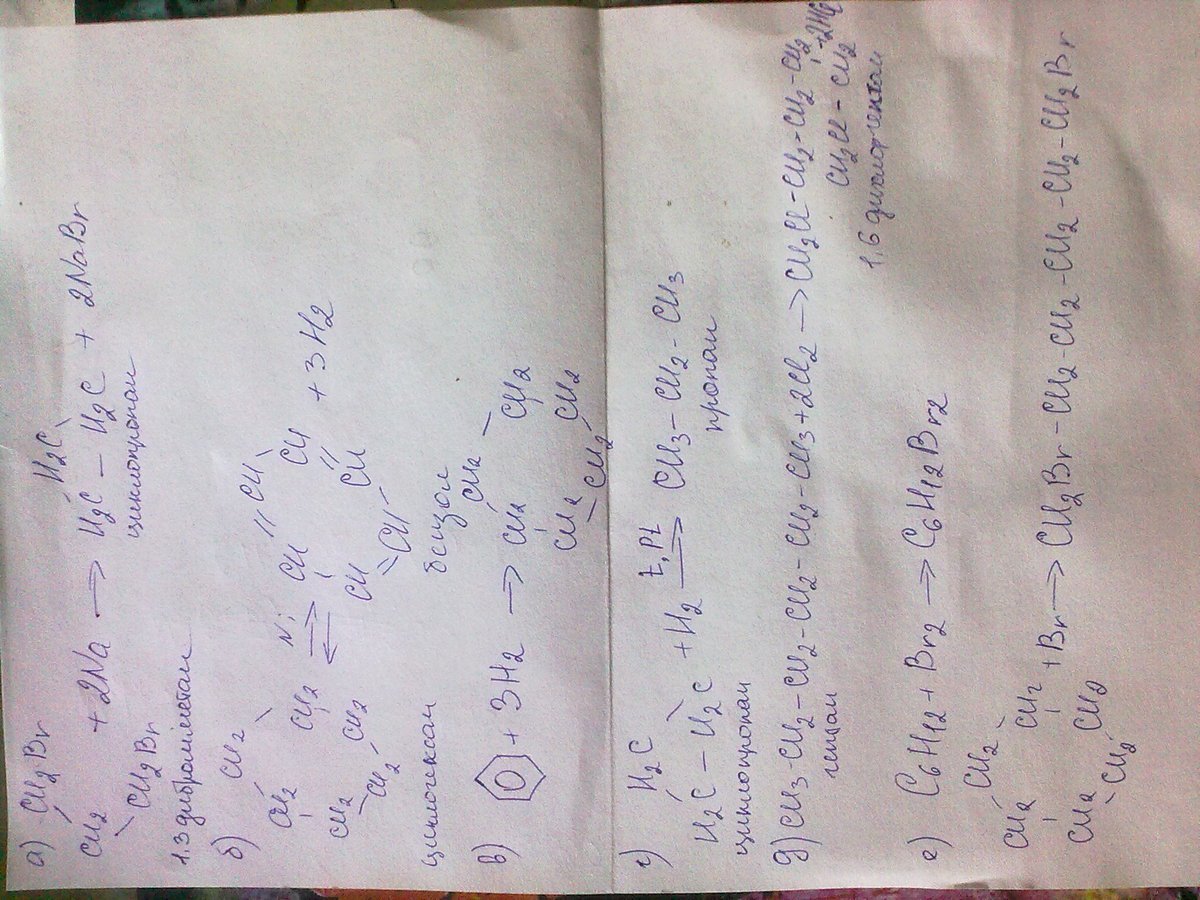 а) CH2Br
CH2 + 2Na → H2C – H2C + 2NaBr
H2C
CH2Br циклопропан
1,3 дибромметан
б) CH2 CH
CH2 CH2 Ni ⇌ CH CH + 3H2
CH2 CH2 CH CH
CH2 CH
циклогексан бензол
в) + 3H2 → CH2 CH2 CH2
CH2 CH2 CH2
г) H2C
H2C – H2C + H2 t, Pt → CH3 – CH2 – CH3
циклопропан пропан
д) CH3-CH2-CH2-CH2-CH2-CH2-CH3+2Cl2 → CH2Cl-CH2-CH2-CH2
гептан CH2Cl – CH2 -2HCl
1,6 дихлоргептан
е) C6H12 + Br2 → C6H12Br2
CH2
CH2 CH2
+Br → CH2Br-CH2-CH2-CH2-CH2-CH2Br
CH2 CH2
CH2